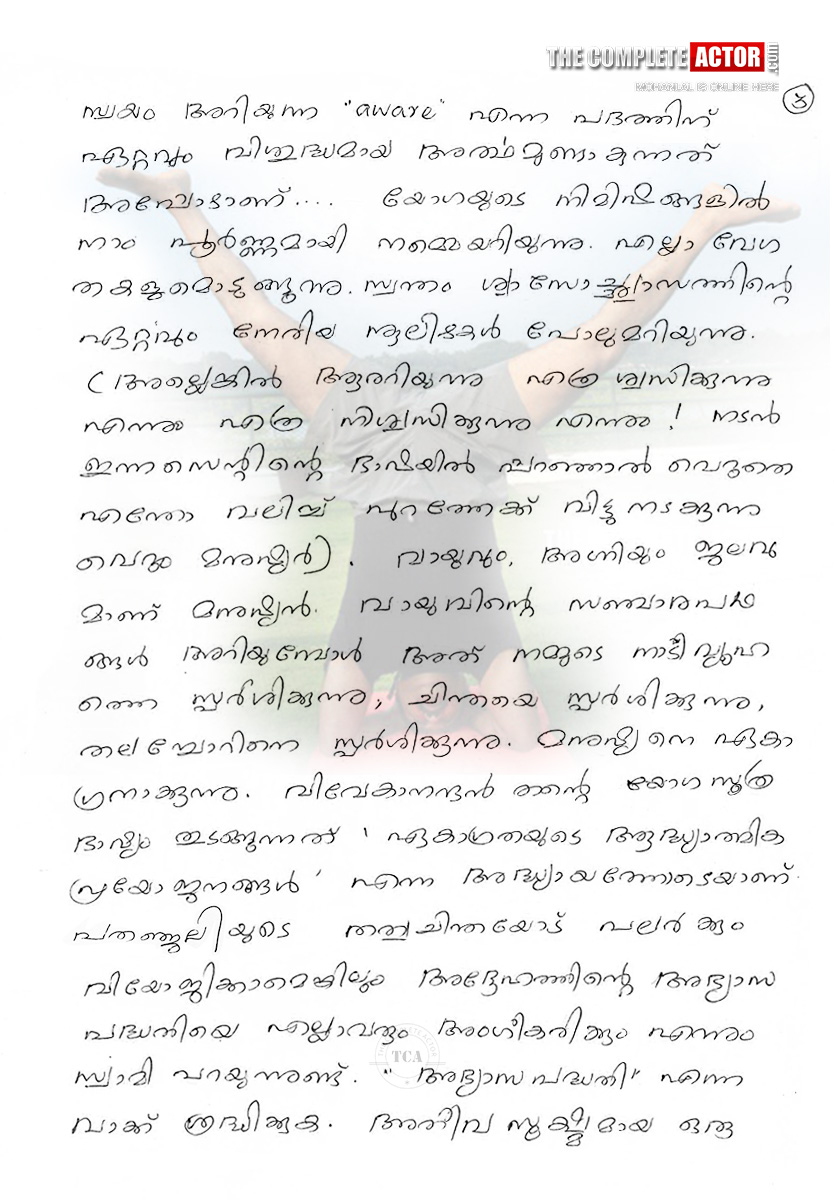 THE COMPLETE ACTOR .COM
MOHANLAL IS ONLINE HERE
സ്വയം അറിയുന്ന "aware" എന്ന പദത്തിന്
ഏറ്റവും വിശുദ്ധമായ അർത്ഥമുണ്ടാകുന്നത്
അപ്പോഴാണ്.... യോഗയുടെ നിമിഷങ്ങളിൽ
നാം പൂർണ്ണമായി നമ്മെയറിയുന്നു. എല്ലാ വേഗ
തകളുമൊടുങ്ങുന്നു. സ്വന്തം ശ്വാസോച്ഛ്വാസത്തിന്റെ
ഏറ്റവും നേരിയ നൂലിഴകൾ പോലുമറിയുന്നു.
(അല്ലെങ്കിൽ ആരറിയുന്നു എത്ര ശ്വസിക്കുന്നു
എന്നും എത്ര നിശ്വസിക്കുന്നു എന്നും! നടൻ
ഇന്നസെന്റിന്റെ ഭാഷയിൽ പറഞ്ഞാൽ വെറുതെ
എന്തോ വലിച്ച് പുറത്തേക്ക് വിട്ടു നടക്കുന്ന
വെറും മനുഷ്യർ). വായുവും, അഗ്നിയും ജലവു
മാണ് മനുഷ്യൻ. വായുവിന്റെ സഞ്ചാരപഥ
ങ്ങൾ അറിയുമ്പോൾ അത് നമ്മുടെ നാഡീവ്യൂഹ
ത്തെ സ്പർശിക്കുന്നു, ചിന്തയെ സ്പർശിക്കുന്നു,
തലച്ചോറിനെ സ്പർശിക്കുന്നു. മനുഷ്യനെ ഏകാ
ഗ്രനാക്കുന്നു. വിവേകാനന്ദൻ തന്റെ യോഗസൂത്ര
ഭാഷ്യം തുടങ്ങുന്നത് 'ഏകാഗ്രതയുടെ ആദ്ധ്യാത്മിക
പ്രയോജനങ്ങൾ' എന്ന അദ്ധ്യായത്തോടെയാണ്.
പതഞ്ജലിയുടെ തത്വചിന്തയോട് പലർക്കും
വിയോജിക്കാമെങ്കിലും അദ്ദേഹത്തിന്റെ അഭ്യാസ
പദ്ധതിയെ എല്ലാവരും അംഗീകരിക്കും എന്നും
സ്വാമി പറയുന്നുണ്ട്. "അഭ്യാസപദ്ധതി" എന്ന
TCA
വാക്ക് ശ്രദ്ധിക്കുക. അതീവ സൂക്ഷ്മമായ ഒരു